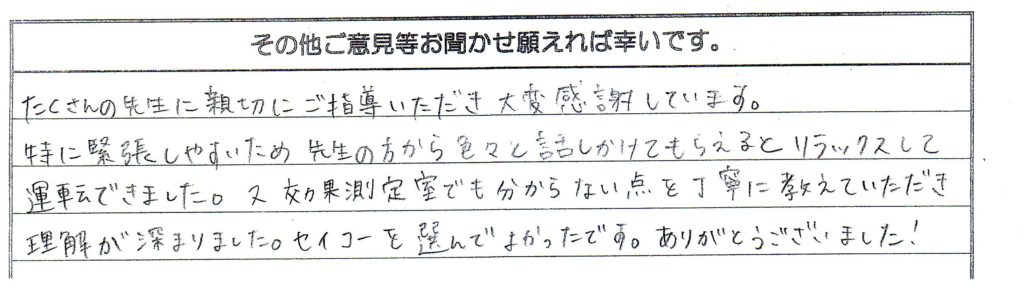 その他ご意見等お聞かせ願えれば幸いです。
たくさんの先生に親切にご指導いただき大変感謝しています。
特に緊張しやすいため先生の方から色々と話しかけてもらえるとリラックスして
運転できました。又効果測定室でも分からない点を丁寧に教えていただき
理解が深まりました。セイコーを選んでよかったです。ありがとうございました!